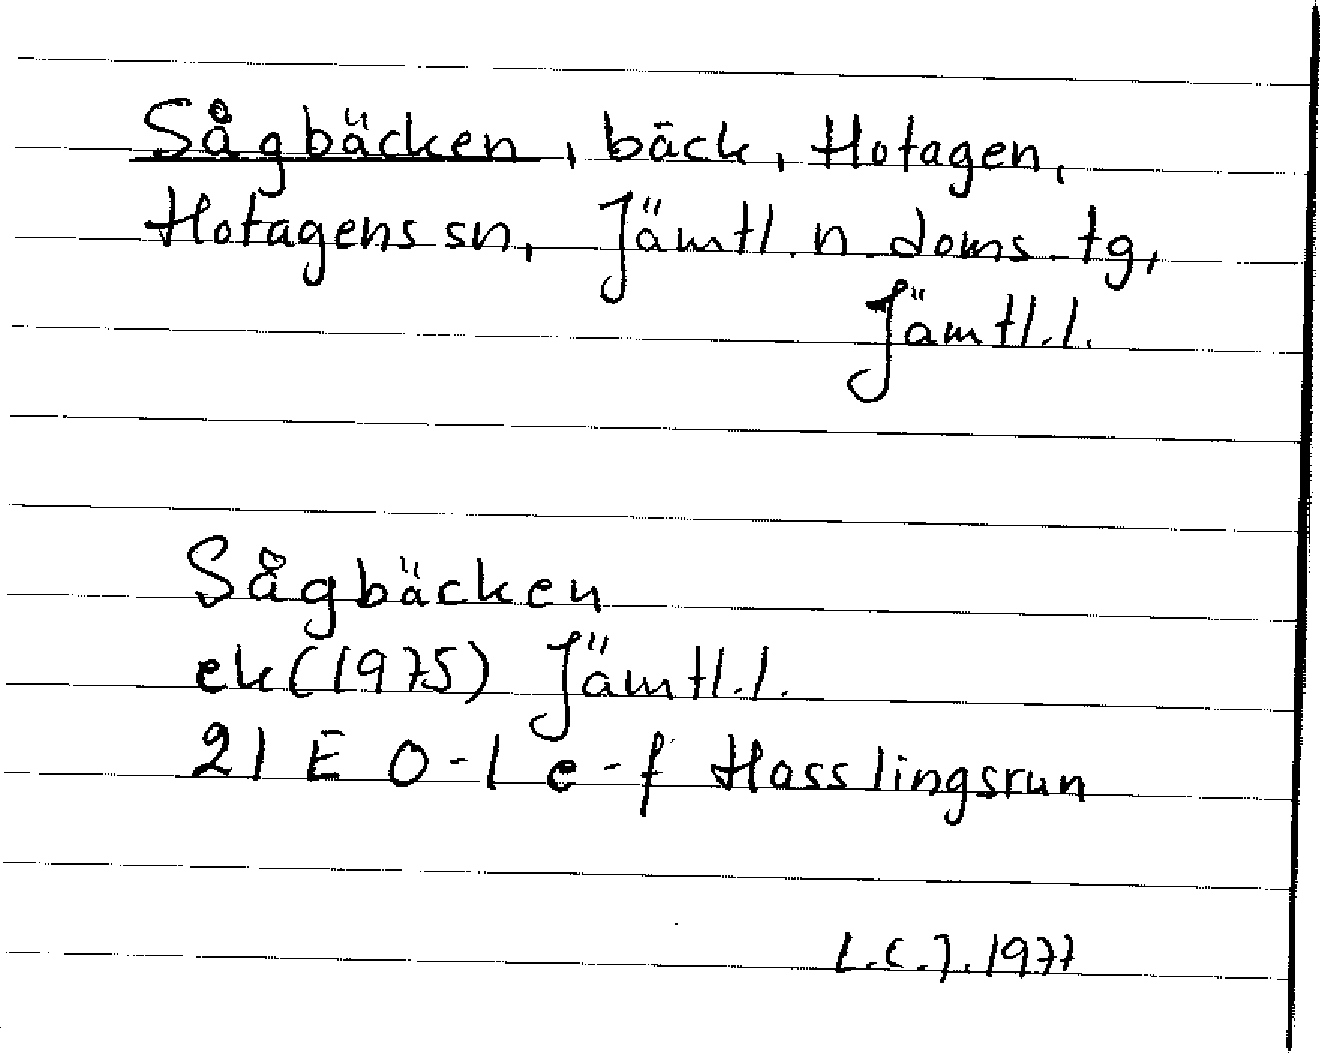 Sågbäcken, bäck, Hotagen,
Hotagens sn, Jämtl. n. doms. tg,
Jämtl.l.
Sågbäcken
ek (1975) Jämtl.l.
21 E 0-1 e-f Hosslingsrun
L.C.J. 1977